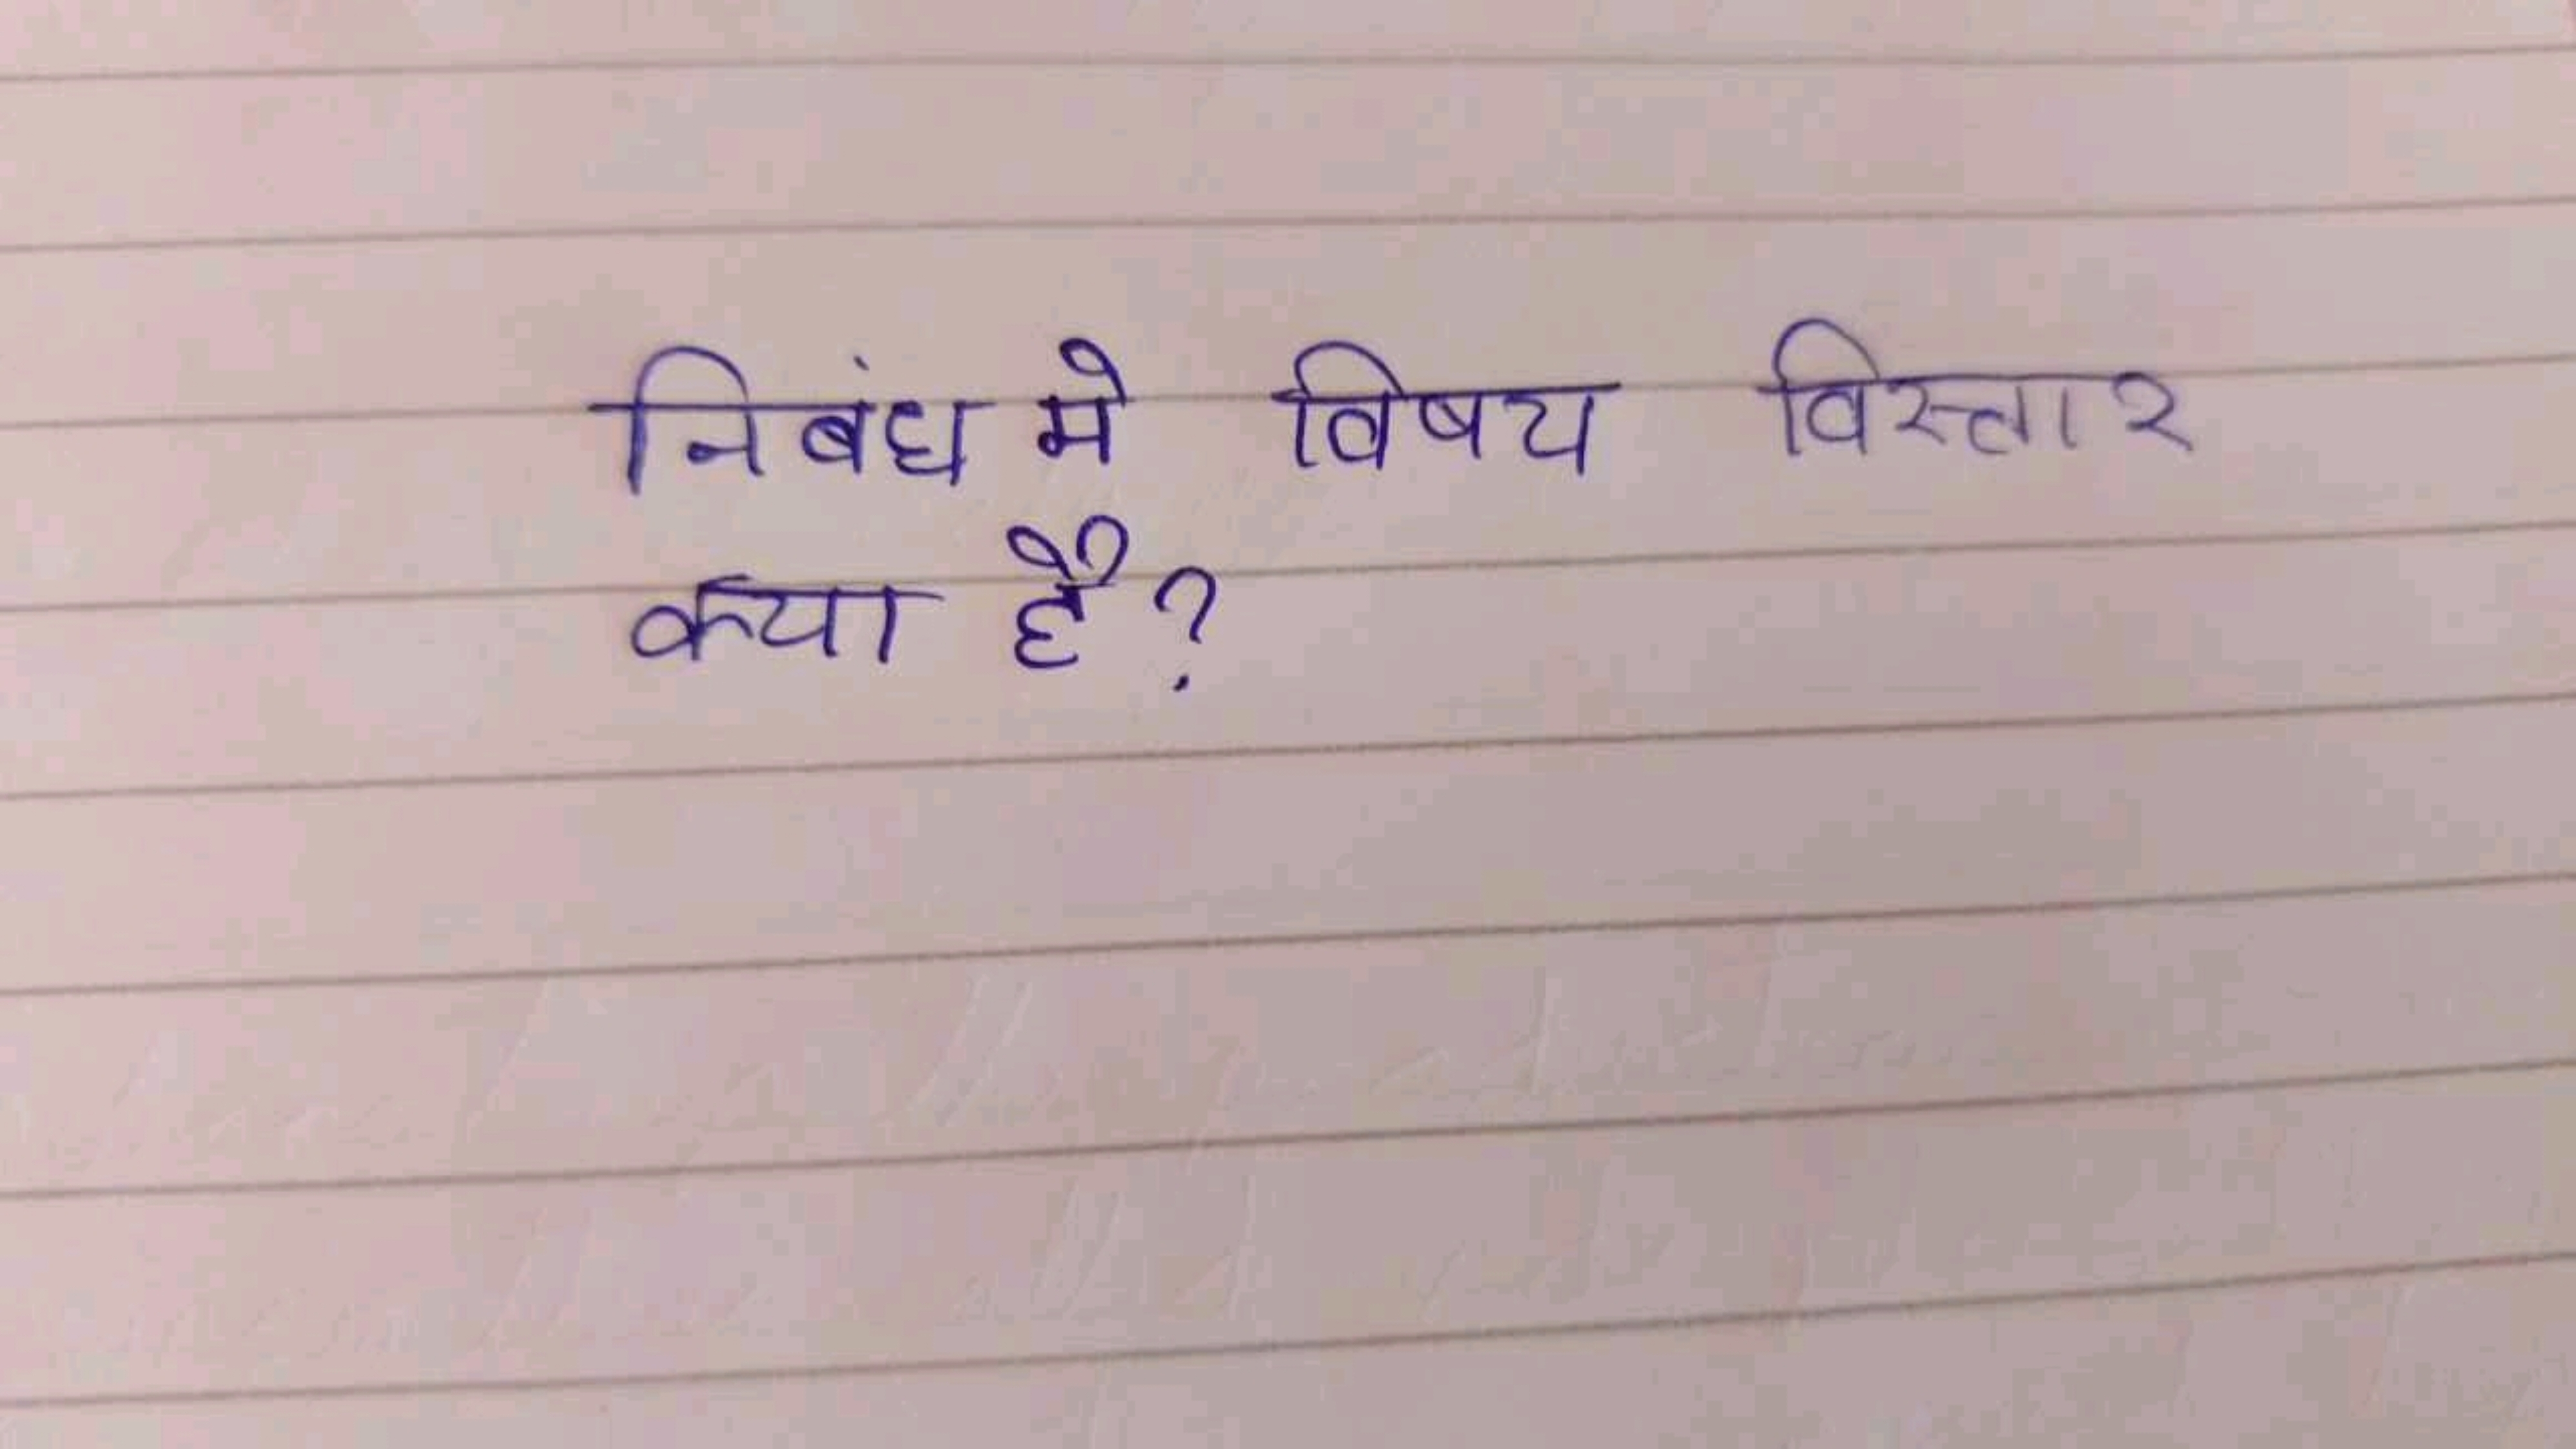 निबंध मे विषय विस्तार
क्या है?